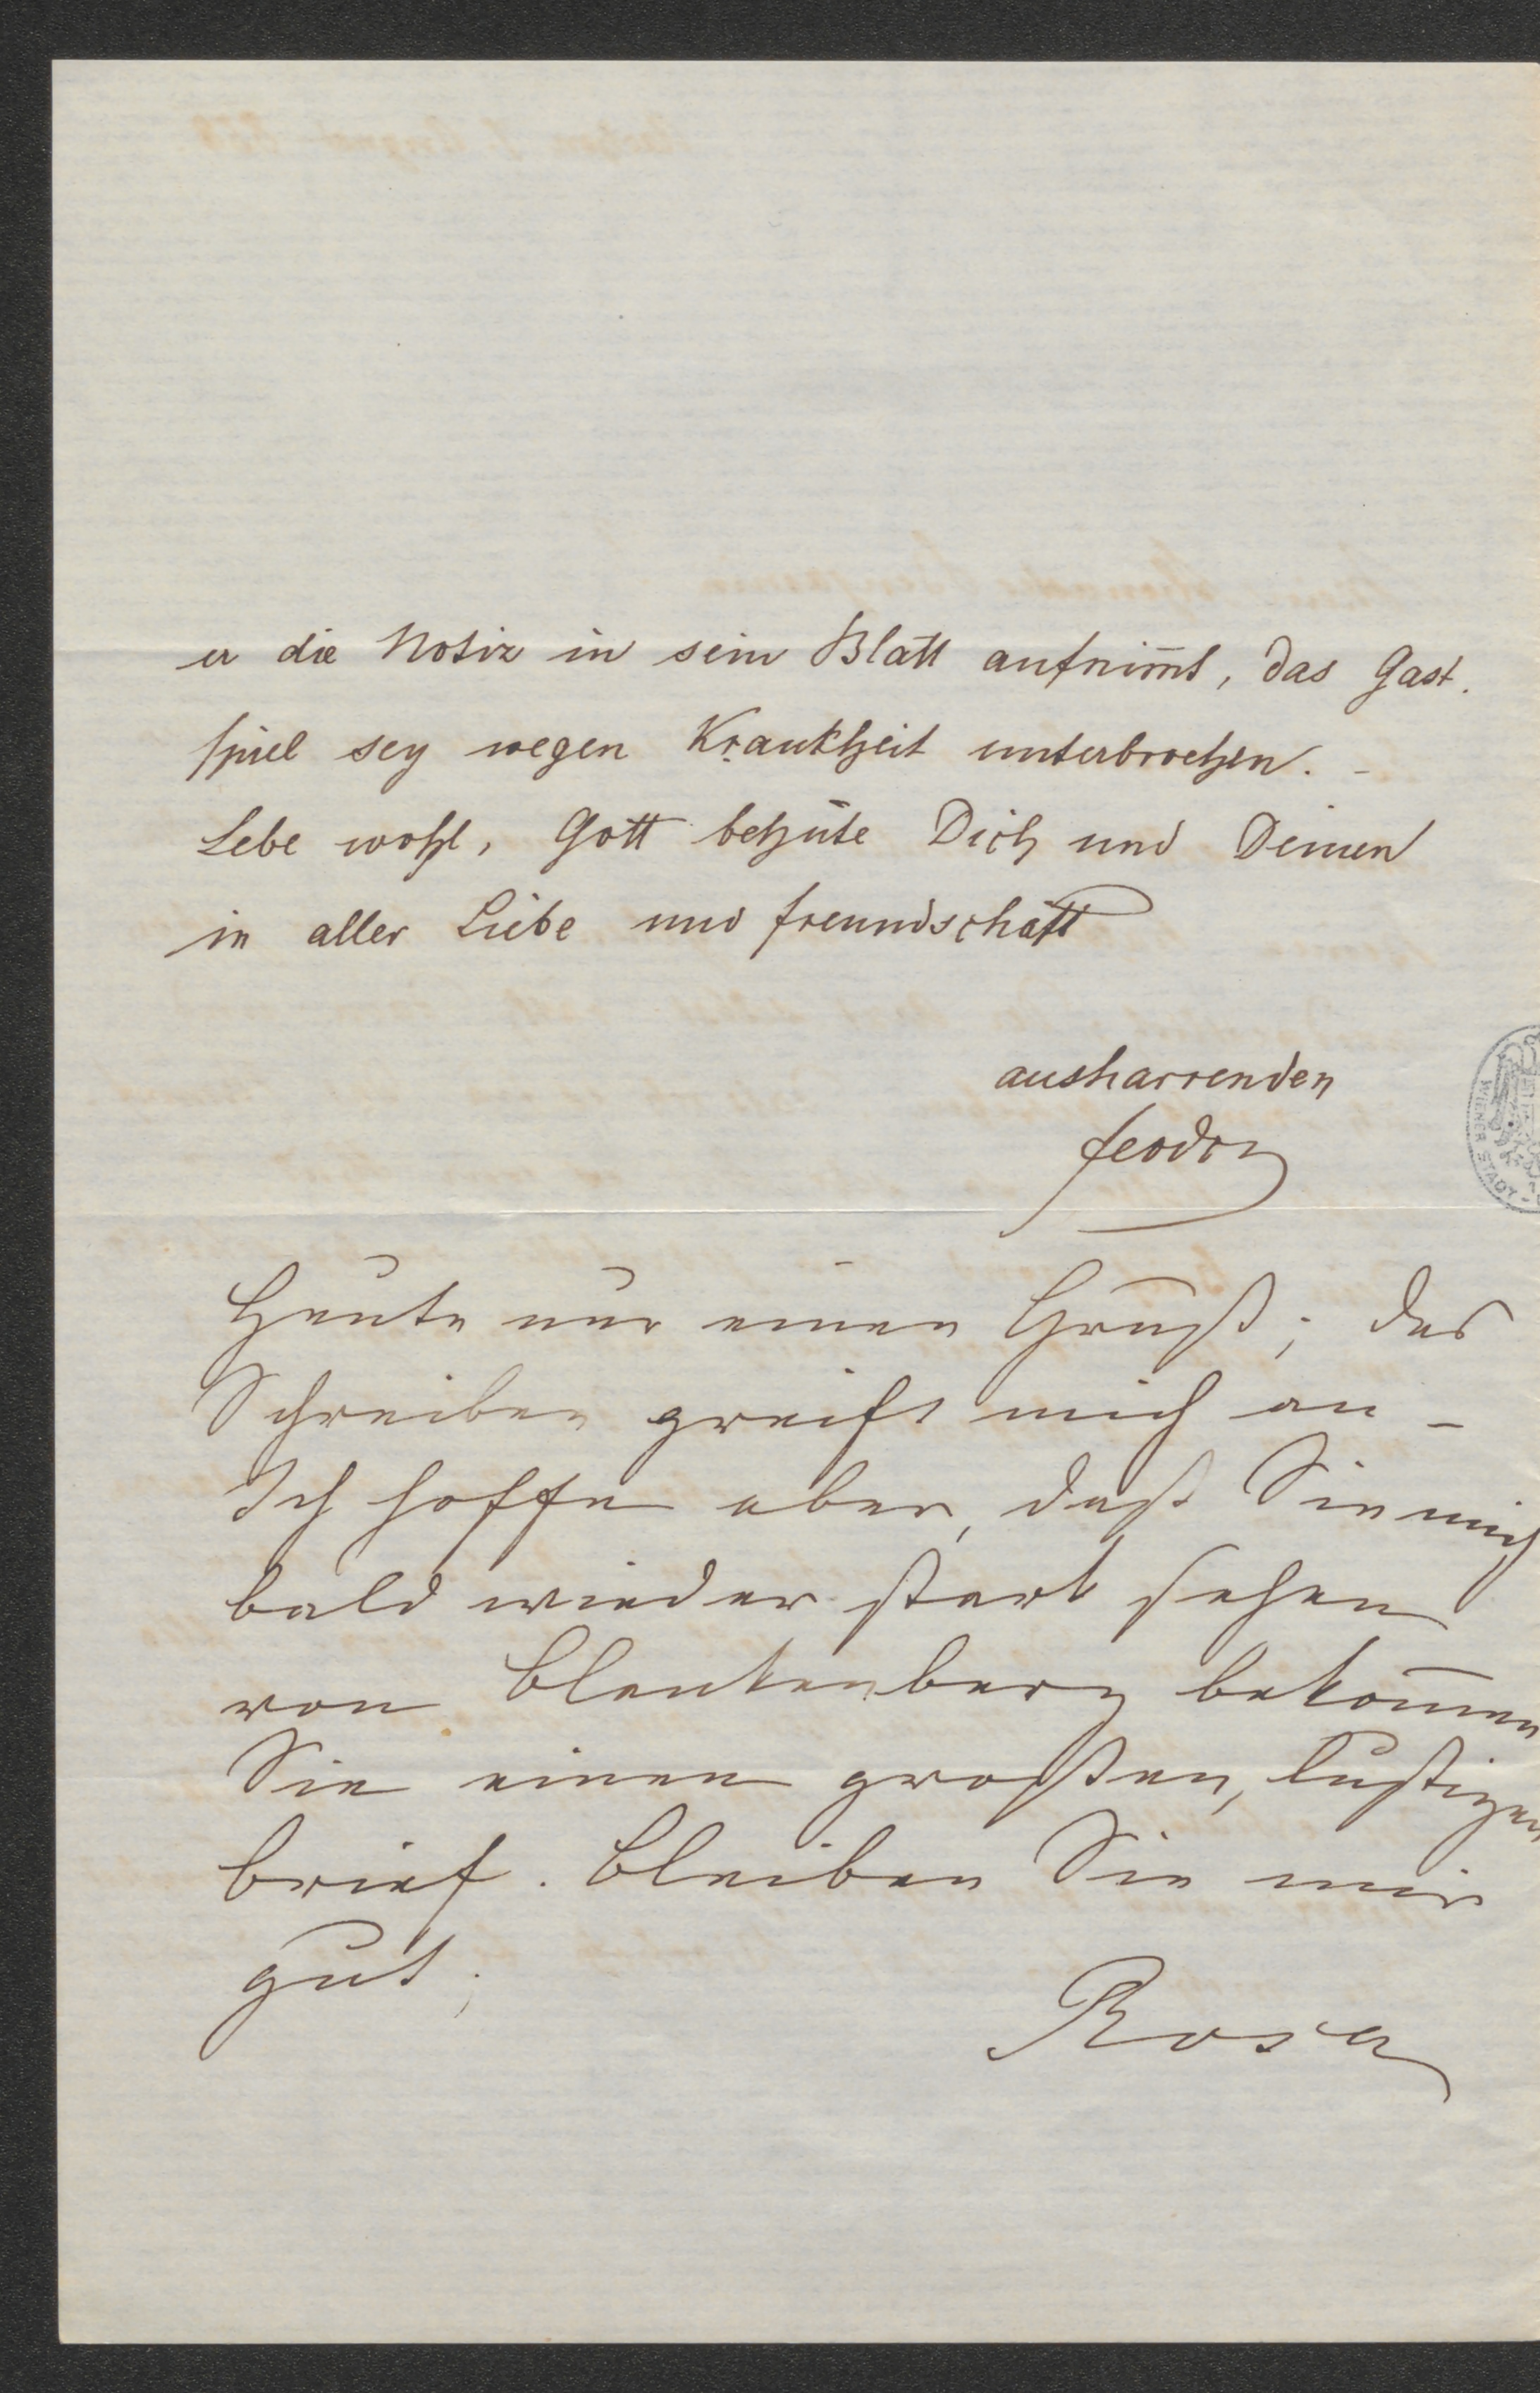 er die Notiz in sein Blatt aufnim̄t, das Gast.
spiel sey wegen Krankheit unterbrochen. –
Lebe wohl, Gott behüte Dich und Deinen
in aller Liebe und Freundschaft
ausharrenden
Feodor
Heute nur einen Gruß; das
Schreiben greift mich an –
Ich hoffe aber, daß Sie mich
bald wieder stark sehen
von Blankenberg bekom̄en
Sie einen großen, lustigen
Brief. Bleiben Sie mir
gut.
Rosa
WIENER STADT-